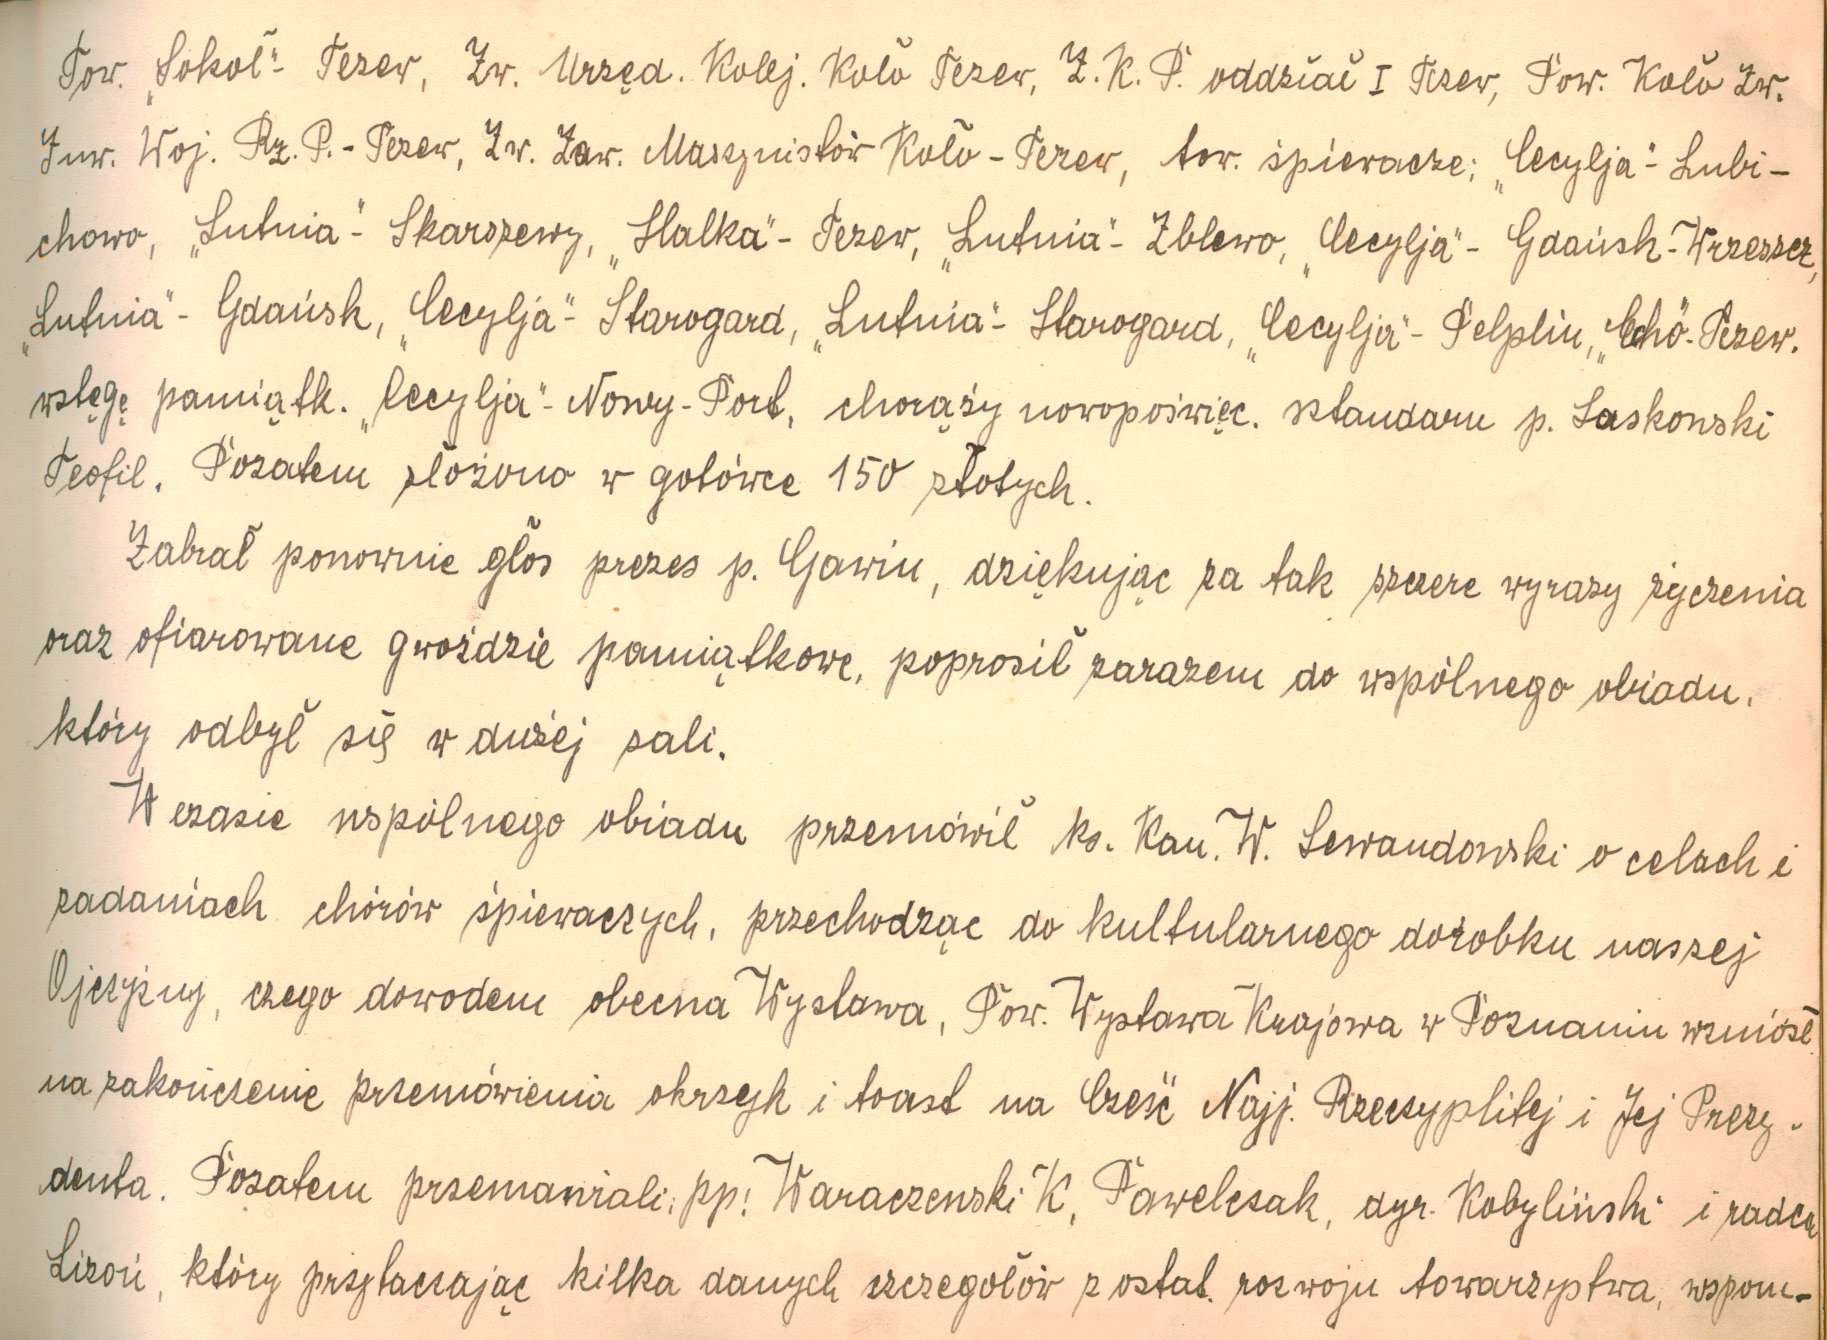 Tow. „Sokół"- Tczew, Zw. Urzęd. Kolej. Koło Tczew, Z.K.P. oddział I Tczew, Pow. Koło Zw.
Inw. Woj. Rz. P. - Tczew, Zw. Zaw. Maszynistów Koło - Tczew, tow. śpiewacze: „Cecylja"- Lubi-
chowo, „Lutnia"- Skarszewy, „Halka"- Tczew, „Lutnia"- Zblewo, „Cecylja"- Gdańsk-Wrzeszcz,
„Lutnia"- Gdańsk, „Cecylja"- Starogard, „Lutnia"- Starogard, „Cecylja"- Pelplin, „Echo"- Tczew.
wstęgę pamiątk. „Cecylja"- Nowy-Port, chorąży nowopoświęc. sztandaru p. Laskowski
Teofil. Pozatem złożono w gotówce 150 złotych.
Zabrał ponownie głos prezes p. Gawin, dziękując za tak szczere wyrazy życzenia
oraz ofiarowane gwoździe pamiątkowe, poprosił zarazem do wspólnego obiadu,
który odbył się w dużej sali.
W czasie wspólnego obiadu przemówił ks. Kan. W. Lewandowski o celach i
zadaniach chórów śpiewaczych, przechodząc do kultularnego dorobku naszej
Ojczyzny, czego dowodem obecna Wystawa, Pow. Wystawa Krajowa w Poznaniu wzniósł
na zakończenie przemówienia okrzyk i toast na Cześć Najj. Rzeczyplitej i Jej Prezy-
denta. Pozatem przemawiali: pp: Waraczewski K, Pawelczak, dyr. Kobyliński i radca
Lizoń, który przytaczając kilka danych szczegółów z ostat. rozwoju towarzystwa, wspom-